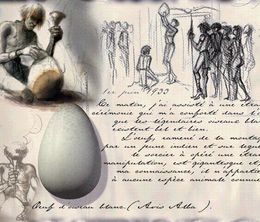 1er juin 1933
Ce matin, j'ai assisté à une étran
cérémonie qui m'a conforté dans l'i
que les légendaires oiseaux bla
existent bel et bien.
L'oeuf, ramené de la montag
par un jeune indien et sur leque
le sorcier a opéré une étra
manipulation, est gigantesque et
ma connaissance, il n'apparti
à aucune espèce animale connue
Oeuf d'oiseau blanc. (Avis Alba).